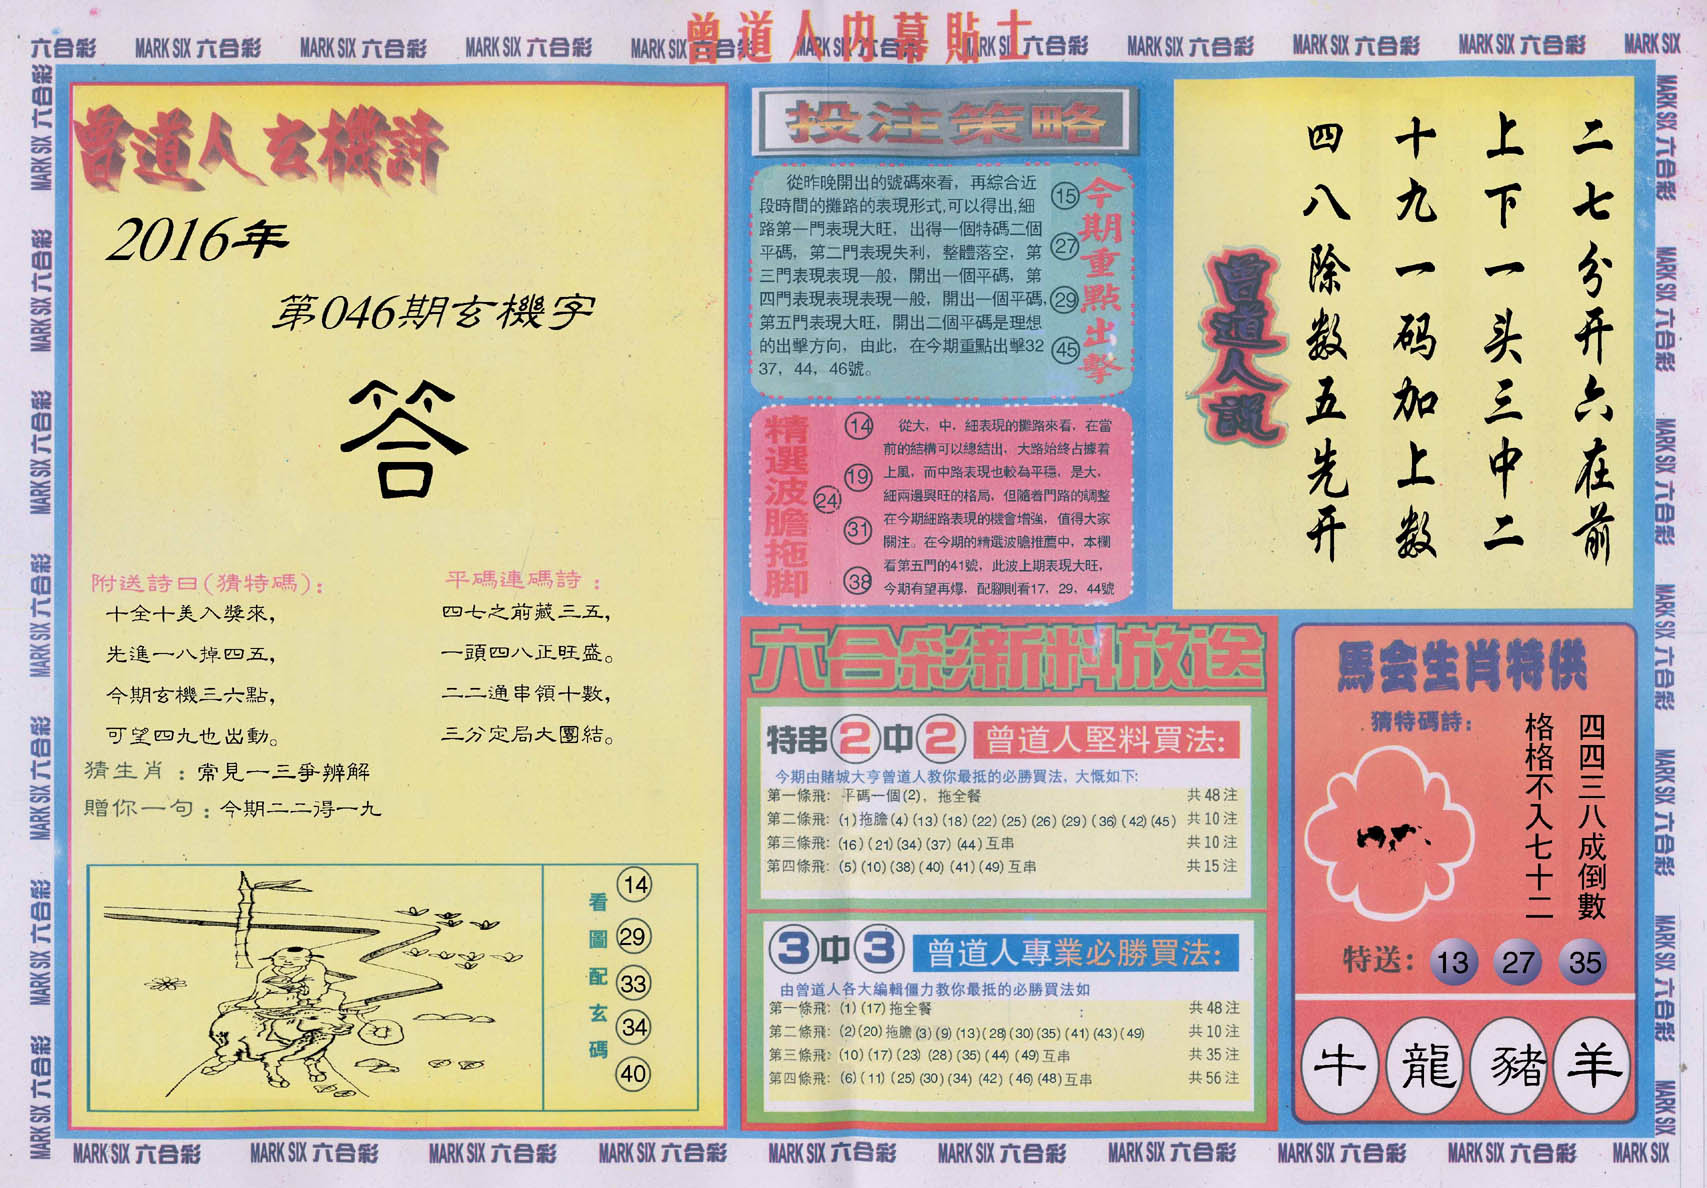 曾道人内幕貼士
六合彩 MARK SIX 六合彩 MARK SIX 六合彩 MARK SIX 六合彩 MARK SIX 六合彩 MARK SIX 六合彩 MARK SIX 六合彩 MARK SIX 六合彩 MARK SIX 六合彩 MARK SIX 六合彩 MARK SIX
曾道人玄機詩
2016年
第046期玄機字
答
附送詩曰(猜特碼):
十全十美入獎來,
先進一八掉四五,
今期玄機三六點,
可望四九也出動。
平碼連碼詩:
四七之前藏三五,
一頭四八正旺盛。
二二通串領十數,
三分定局大團結。
猜生肖:常見一三爭辨解
贈你一句:今期二二得一九
看圖配玄碼
14
29
33
34
40
投注策略
從昨晚開出的號碼來看,再綜合近
段時間的攤路的表現形式,可以得出,細
路第一門表現大旺,出得一個特碼二個
平碼,第二門表現失利,整體落空,第
三門表現表現一般,開出一個平碼,第
四門表現表現表現一般,開出一個平碼,
第五門表現大旺,開出二個平碼是理想
的出擊方向,由此,在今期重點出擊32
37,44,46號。
15
27
29
45
今期重點出擊
精選波膽拖脚
14
19
24
31
38
從大,中,細表現的攤路來看,在當
前的結構可以總結出,大路始終占據着
上風,而中路表現也較為平穩,是大,
細兩邊興旺的格局,但隨着門路的調整
在今期細路表現的機會增強,值得大家
關注。在今期的精選波膽推薦中,本欄
看第五門的41號,此波上期表現大旺,
今期有望再爆,配腳則看17,29,44號
曾道人説
二七分开六在前
上下一头三中二
十九一码加上数
四八除数五先开
六合彩新料放送
特串2中2 曾道人堅料買法:
今期由賭城大亨曾道人教你最抵的必勝買法,大慨如下:
第一條飛: 平碼一個(2),拖全餐 共48注
第二條飛: (1)拖膽(4)(13)(18)(22)(25)(26)(29)(36)(42)(45) 共10注
第三條飛: (16)(21)(34)(37)(44)互串 共10注
第四條飛: (5)(10)(38)(40)(41)(49)互串 共15注
3中3 曾道人專業必勝買法:
由曾道人各大編輯僵力教你最抵的必勝買法如
第一條飛: (1)(17)拖全餐 共48注
第二條飛: (2)(20)拖膽(3)(9)(13)(28)(30)(35)(41)(43)(49) 共10注
第三條飛: (10)(17)(23)(28)(35)(44)(49)互串 共35注
第四條飛: (6)(11)(25)(30)(34)(42)(46)(48)互串 共56注
馬会生肖特供
猜特碼詩:
四四三八成倒數
格格不入七十二
特送: 13 27 35
牛 龍 豬 羊
MARK SIX 六合彩 MARK SIX 六合彩 MARK SIX 六合彩 MARK SIX 六合彩 MARK SIX 六合彩 MARK SIX 六合彩 MARK SIX 六合彩 MARK SIX 六合彩 MARK SIX 六合彩 MARK SIX